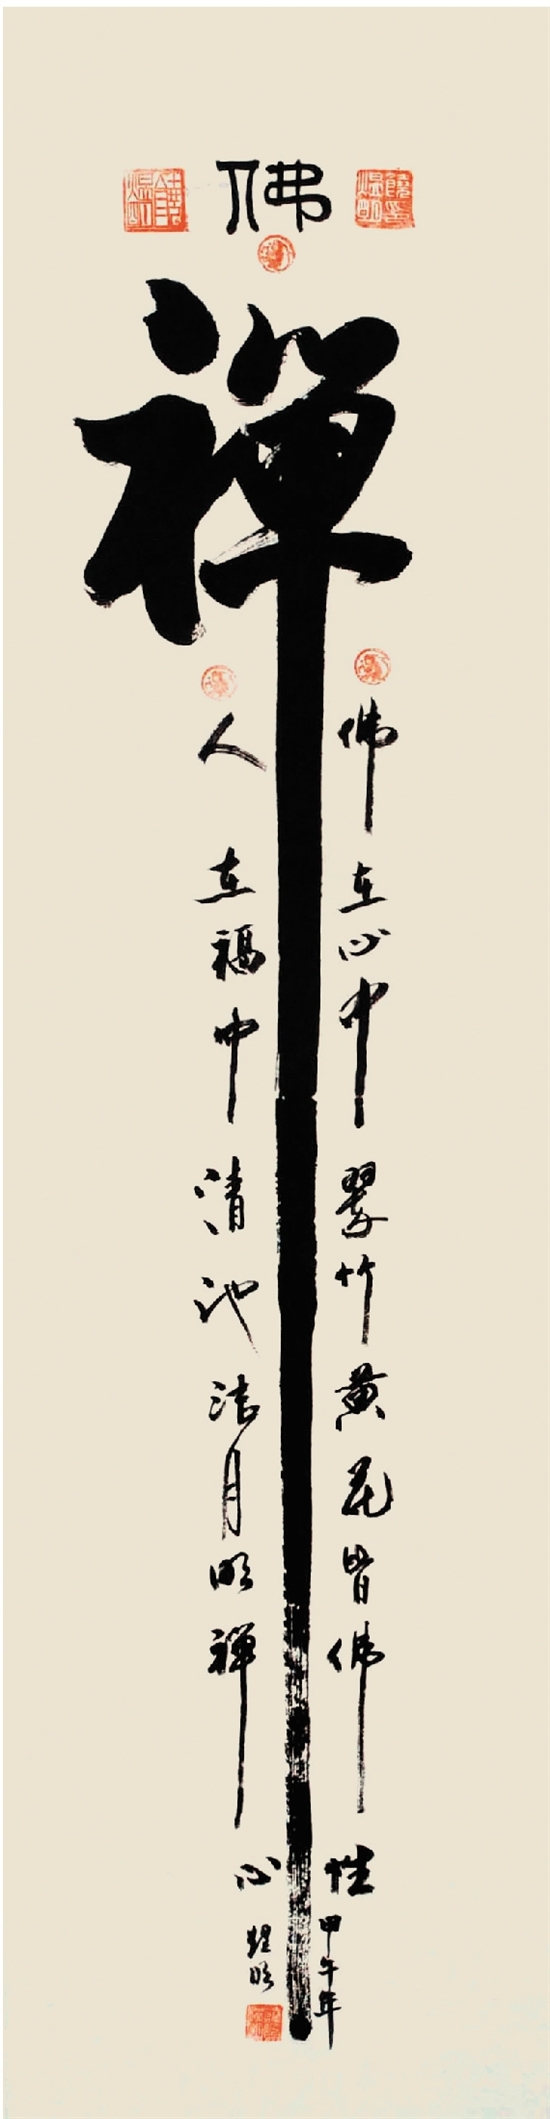 佛
禅
佛在心中翠竹黄花皆佛性
甲午年
人在福中清池洁月明禅心